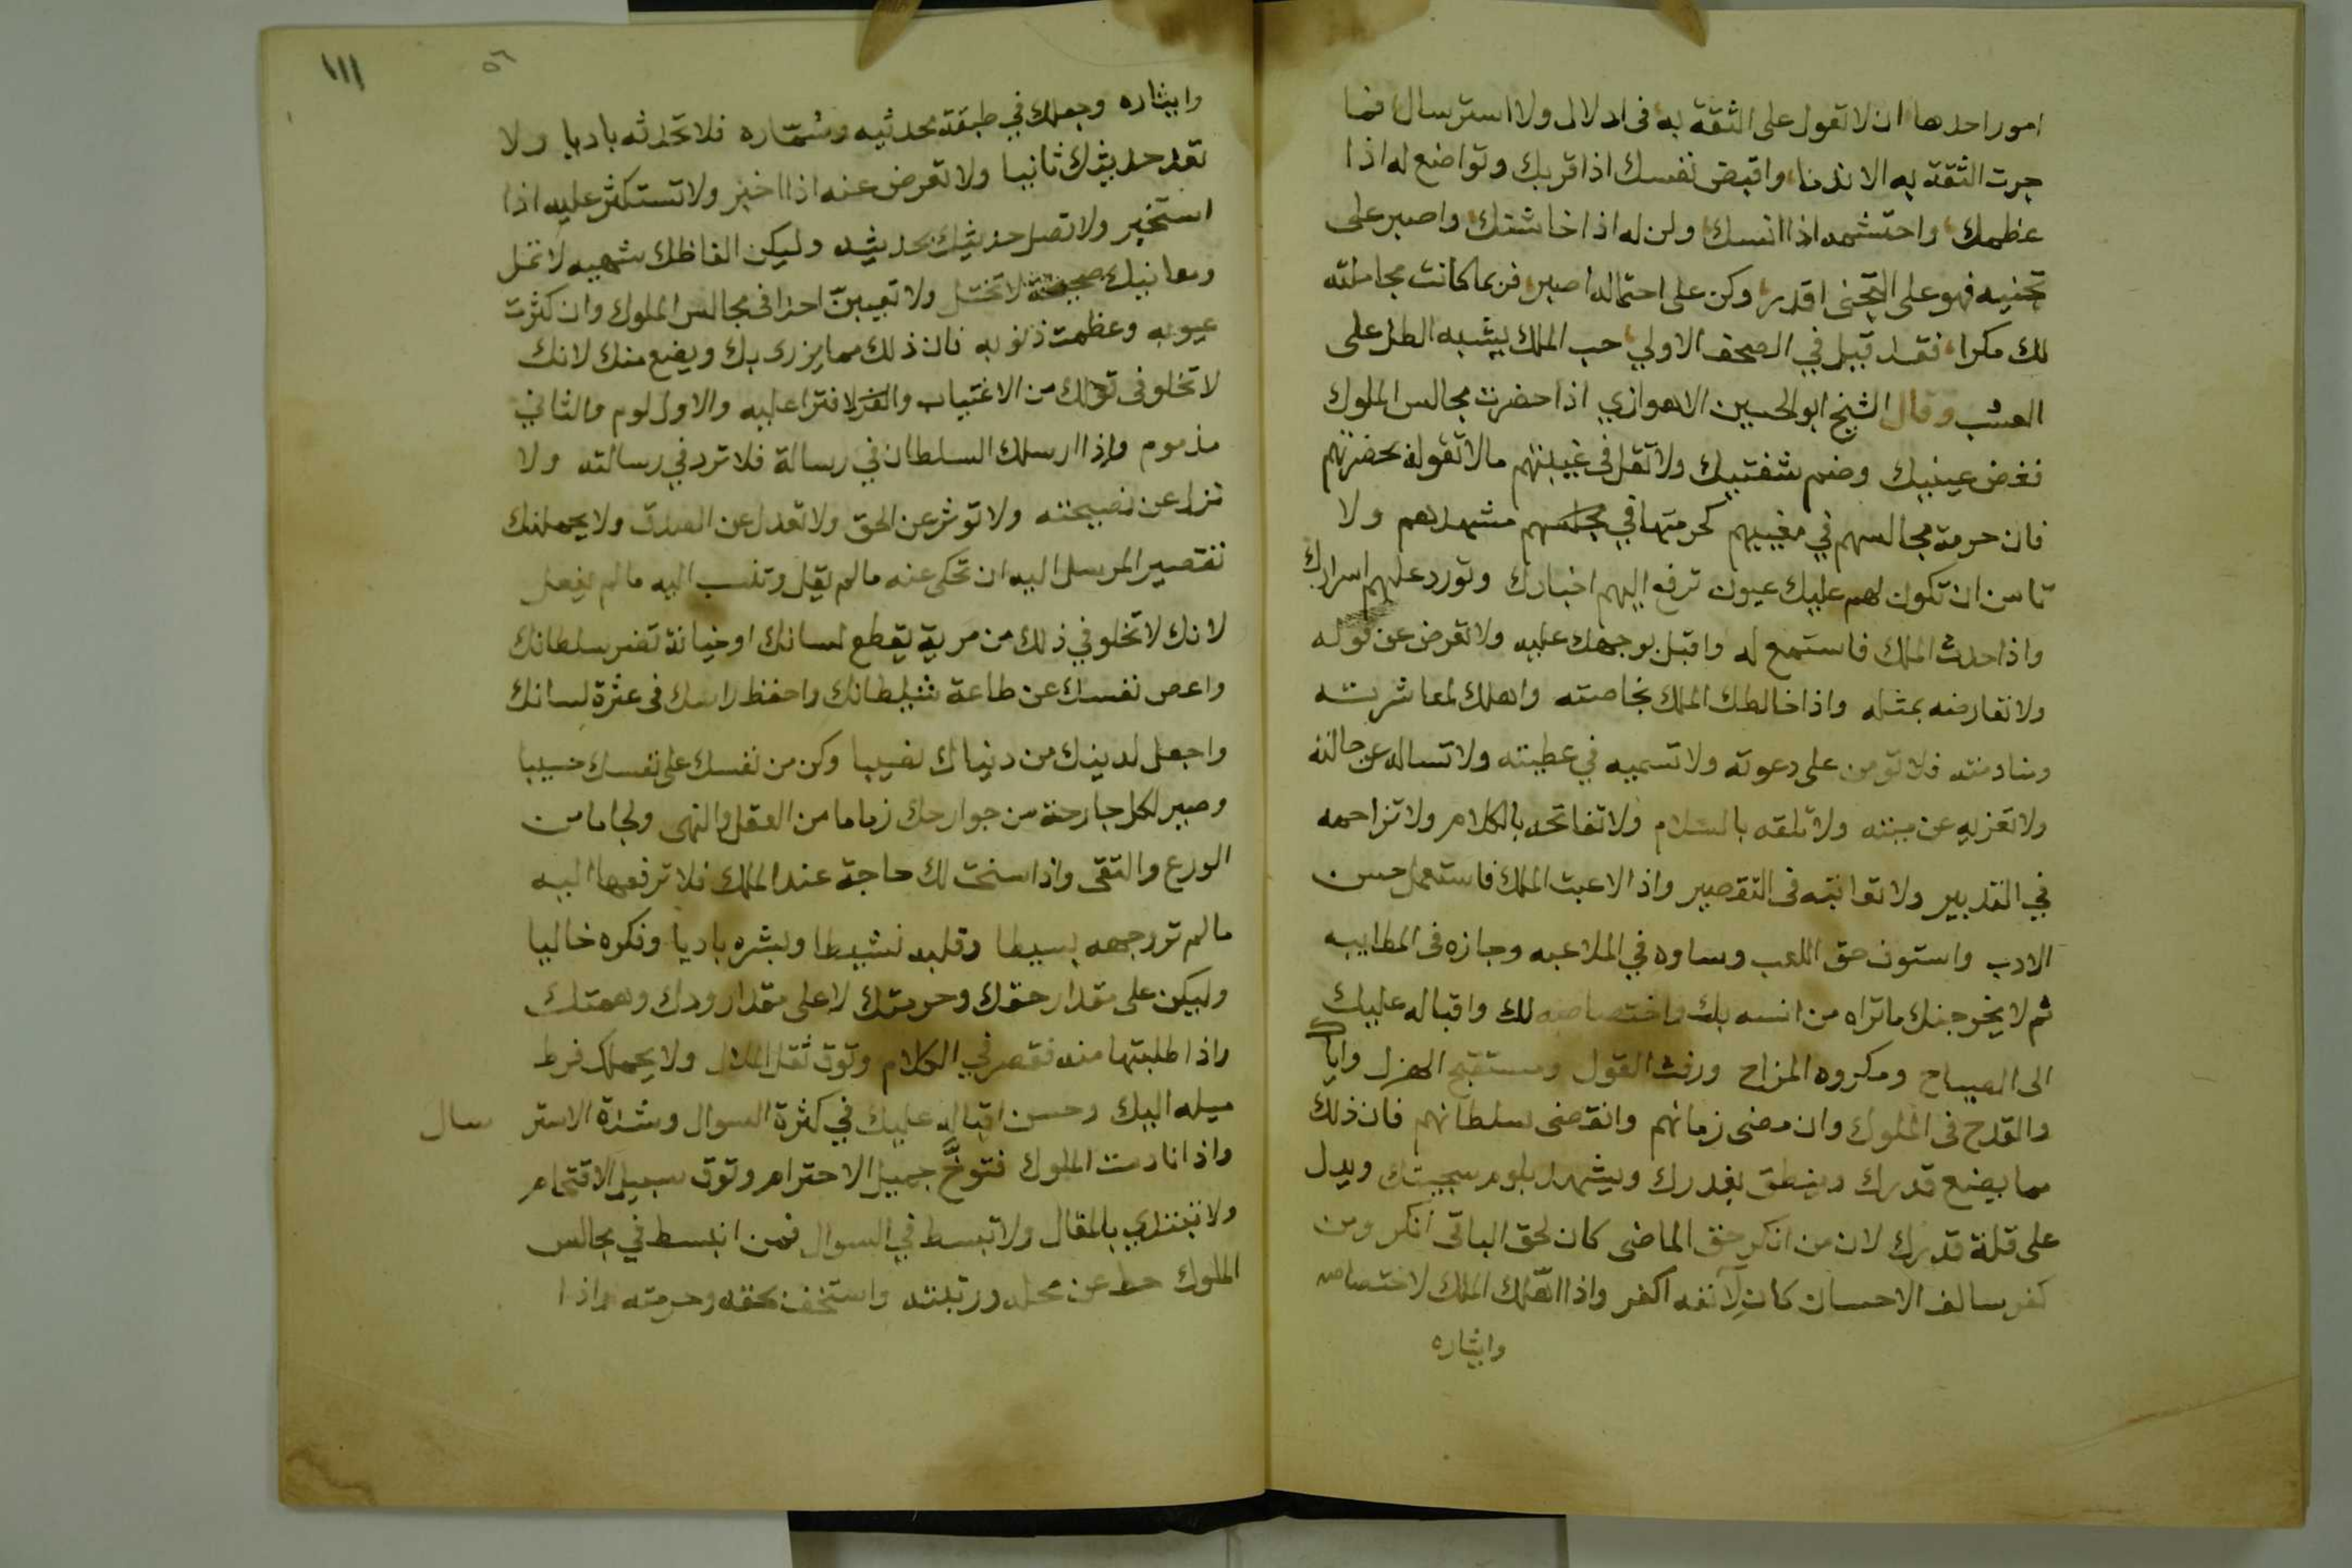 امور احدها ان لا تعول على الثقة به فى ادلال ولا استرسال فما
جرت الثقة به الا ندما واقبض نفسك اذا قربك وتواضع له اذا
عظمك واحتشمه اذا انسك ولن له اذا خاشنك واصبر على
تجنيه فهو على التجنى اقدر وكن على احتماله اصبر فربما كانت مجاملته
لك مكرا فقد قيل في الصحف الاولي حب الملك يشبه الطل على
العشب وقال الشيخ ابو الحسين الاهوازي اذا حضرت مجالس الملوك
فغض عينيك وضم شفتيك ولا تقل فى غيبتهم مالا تقوله بحضرتهم
فان حرمة مجالسهم في مغيبهم كحرمتها في مجلسهم مشهدهم ولا
تامن ان تكون لهم عليك عيون ترفع اليهم اخبارك وتورد عليهم اسرارك
واذا حدث الملك فاستمع له واقبل بوجهك عليه ولا تعرض عن قوله
ولا تعارضه بمثله واذا خالطك الملك بخاصته واهلك لمعاشرته
ومنادمته فلا تومن على دعوته ولا تسميه في عطيته ولا تساله عن حالته
ولا تعزيه عن ميته ولا تلقه بالسلام ولا تفاتحه بالكلام ولا تزاحمه
في التدبير ولا تعاتبه فى التقصير واذا لاعبت الملك فاستعمل حسن
الادب واستوف حق اللعب وساوه في الملاعبه وجازه فى المطايبه
ثم لا يخرجنك ما تراه من انسه بك واختصاصه لك واقباله عليك
الى الصياح ومكروه المزاح ورفث القول ومستقبح الهزل واياك
والقدح فى الملوك وان مضى زمانهم وانقضى سلطانهم فان ذلك
مما يضع قدرك وينطق بغدرك ويشهد بلوم سجيتك ويدل
على قلة قدرك لان من انكر حق الماضى كان لحق الباقى انكر ومن
كفر سالف الاحسان كان لآنفه اكفر واذا اهلك الملك لاختصاصه
وايثاره
١١١
٥٦
وايثاره وجعلك في طبقة محدثيه وسماره فلا تحدثه باديا ولا
تعد حديثك ثانيا ولا تعرض عنه اذا اخبر ولا تستكثر عليه اذا
استخبر ولا تصل حديثك بحديثه وليكن الفاظك شهيه لا تمل
ومعانيك صحيحة لا تختل ولا تعيبن احدا فى مجالس الملوك وان كثرت
عيوبه وعظمت ذنوبه فان ذلك مما يزرى بك ويضع منك لانك
لا تخلو فى قولك من الاغتياب والافترا عليه والاول لوم والثاني
مذموم واذا ارسلك السلطان في رسالة فلا تزد في رسالته ولا
تزل عن نصيحته ولا توثر عن الحق ولا تعدل عن الصدق ولا يحملنك
تقصير المرسل اليه ان تحكى عنه مالم يقل وتنسب اليه مالم يفعل
لانك لا تخلو في ذلك من مرية يقطع لسانك او خيانة تضر سلطانك
واعص نفسك عن طاعة شيطانك واحفظ راسك فى عثرة لسانك
واجعل لدينك من دنياك نصيبا وكن من نفسك على نفسك حسيبا
وصير لكل جارحة من جوارحك زماما من العقل والنهى ولجاما من
الورع والتقى واذا سنحت لك حاجة عند الملك فلا ترفعها اليه
مالم تر وجهه بسيطا وقلبه نشيطا وبشره باديا وفكره خاليا
وليكن على مقدار حقك وحرمتك لا على مقدار ودك وهمتك
واذا طلبتها منه فقصر في الكلام وتوق ثقل الملال ولا يحملك فرط
ميله اليك وحسن اقباله عليك في كثرة السوال وشدة الاسترسال
واذا نادمت الملوك فتوخ جميل الاحترام وتوق سبيل الاقتحام
ولا تبتدي بالمقال ولا تبسط في السوال فمن انبسط في مجالس
الملوك حط عن محله ورتبته واستخف بحقه وحرمته واذا